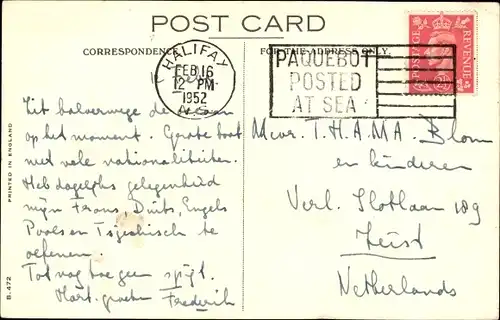 POST CARD
CORRESPONDENCE
FOR THE ADDRESS ONLY.
HALIFAX
FEB 16
12 PM
1952
N.S.
PAQUEBOT
POSTED
AT SEA
POSTAGE
REVENUE
Zit halverwege de oceaan
op het moment. Grote boot
met vele nationaliteiten.
Heb dagelijks gelegenheid
mijn Frans, Duits, Engels
Pools en Tsjechisch te
oefenen.
Tot nog toe geen spijt.
Hart. groeten Frederik
Mevr. T.H.A.M.A. Blom
en kinderen
Verl. Slotlaan 189
Zeist
Netherlands
PRINTED IN ENGLAND
B.472